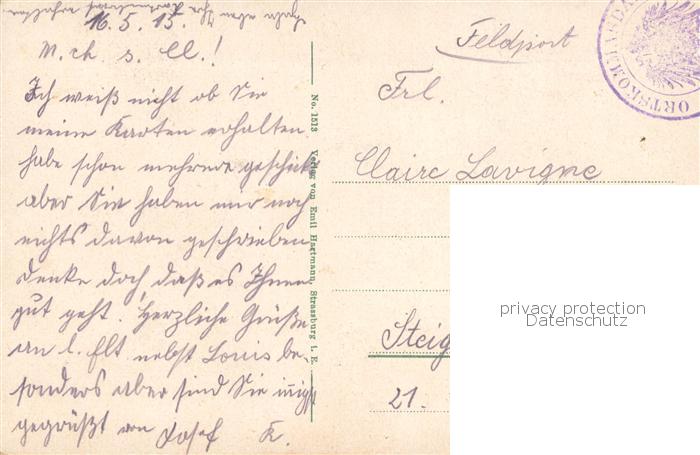 16.5.15.
M. ch. s. Cl.!
Ich weiß nicht ob Sie
meine Karten erhalten,
habe schon mehrere geschickt
aber Sie haben mir noch
nichts davon geschrieben
denke doch daß es Ihnen
gut geht. Herzliche Grüße
an l. Elt. nebst Louis be-
sonders aber sind Sie innigst
gegrüßt von Josef K.
No. 1513 Verlag von Emil Hartmann, Strassburg i. E.
Feldpost
ORTSKOMMANDA
Frl.
Claire Lavigne
Steig
21.
privacy protection
Datenschutz